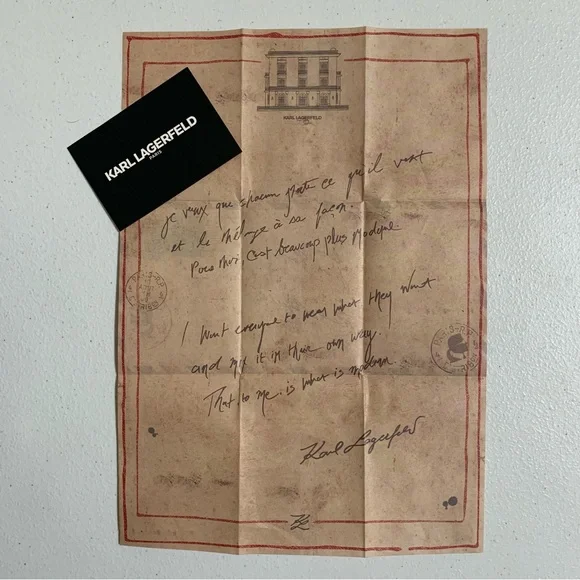 KARL LAGERFELD
KARL LAGERFELD
PARIS
je veux que chacun porte ce qu'il veut
et le mélange à sa façon.
Pour moi, c'est beaucoup plus moderne
I want everyone to wear what they want
and mix it in their own way.
That to me. is what is modern.
PARIS-R.P.
PARIS-R.P.
Karl Lagerfeld
KL